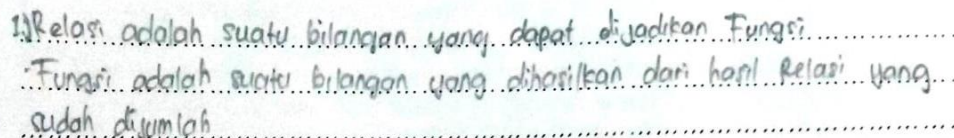 1.) Relasi adalah suatu bilangan yang dapat dijadikan Fungsi
Fungsi adalah suatu bilangan yang dihasilkan dari hasil Relasi yang
sudah dijumlah